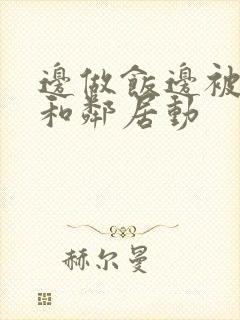 邊做飯邊被
和鄰居動
赫尔曼